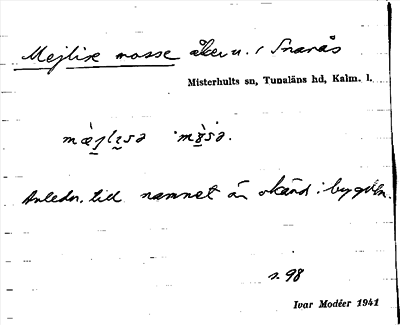 Mejlise mosse åker u. / Snarås
Misterhults sn, Tunaläns hd, Kalm. l.
Anledn. till namnet är okänd i bygden.
s. 98
Ivar Modéer 1941